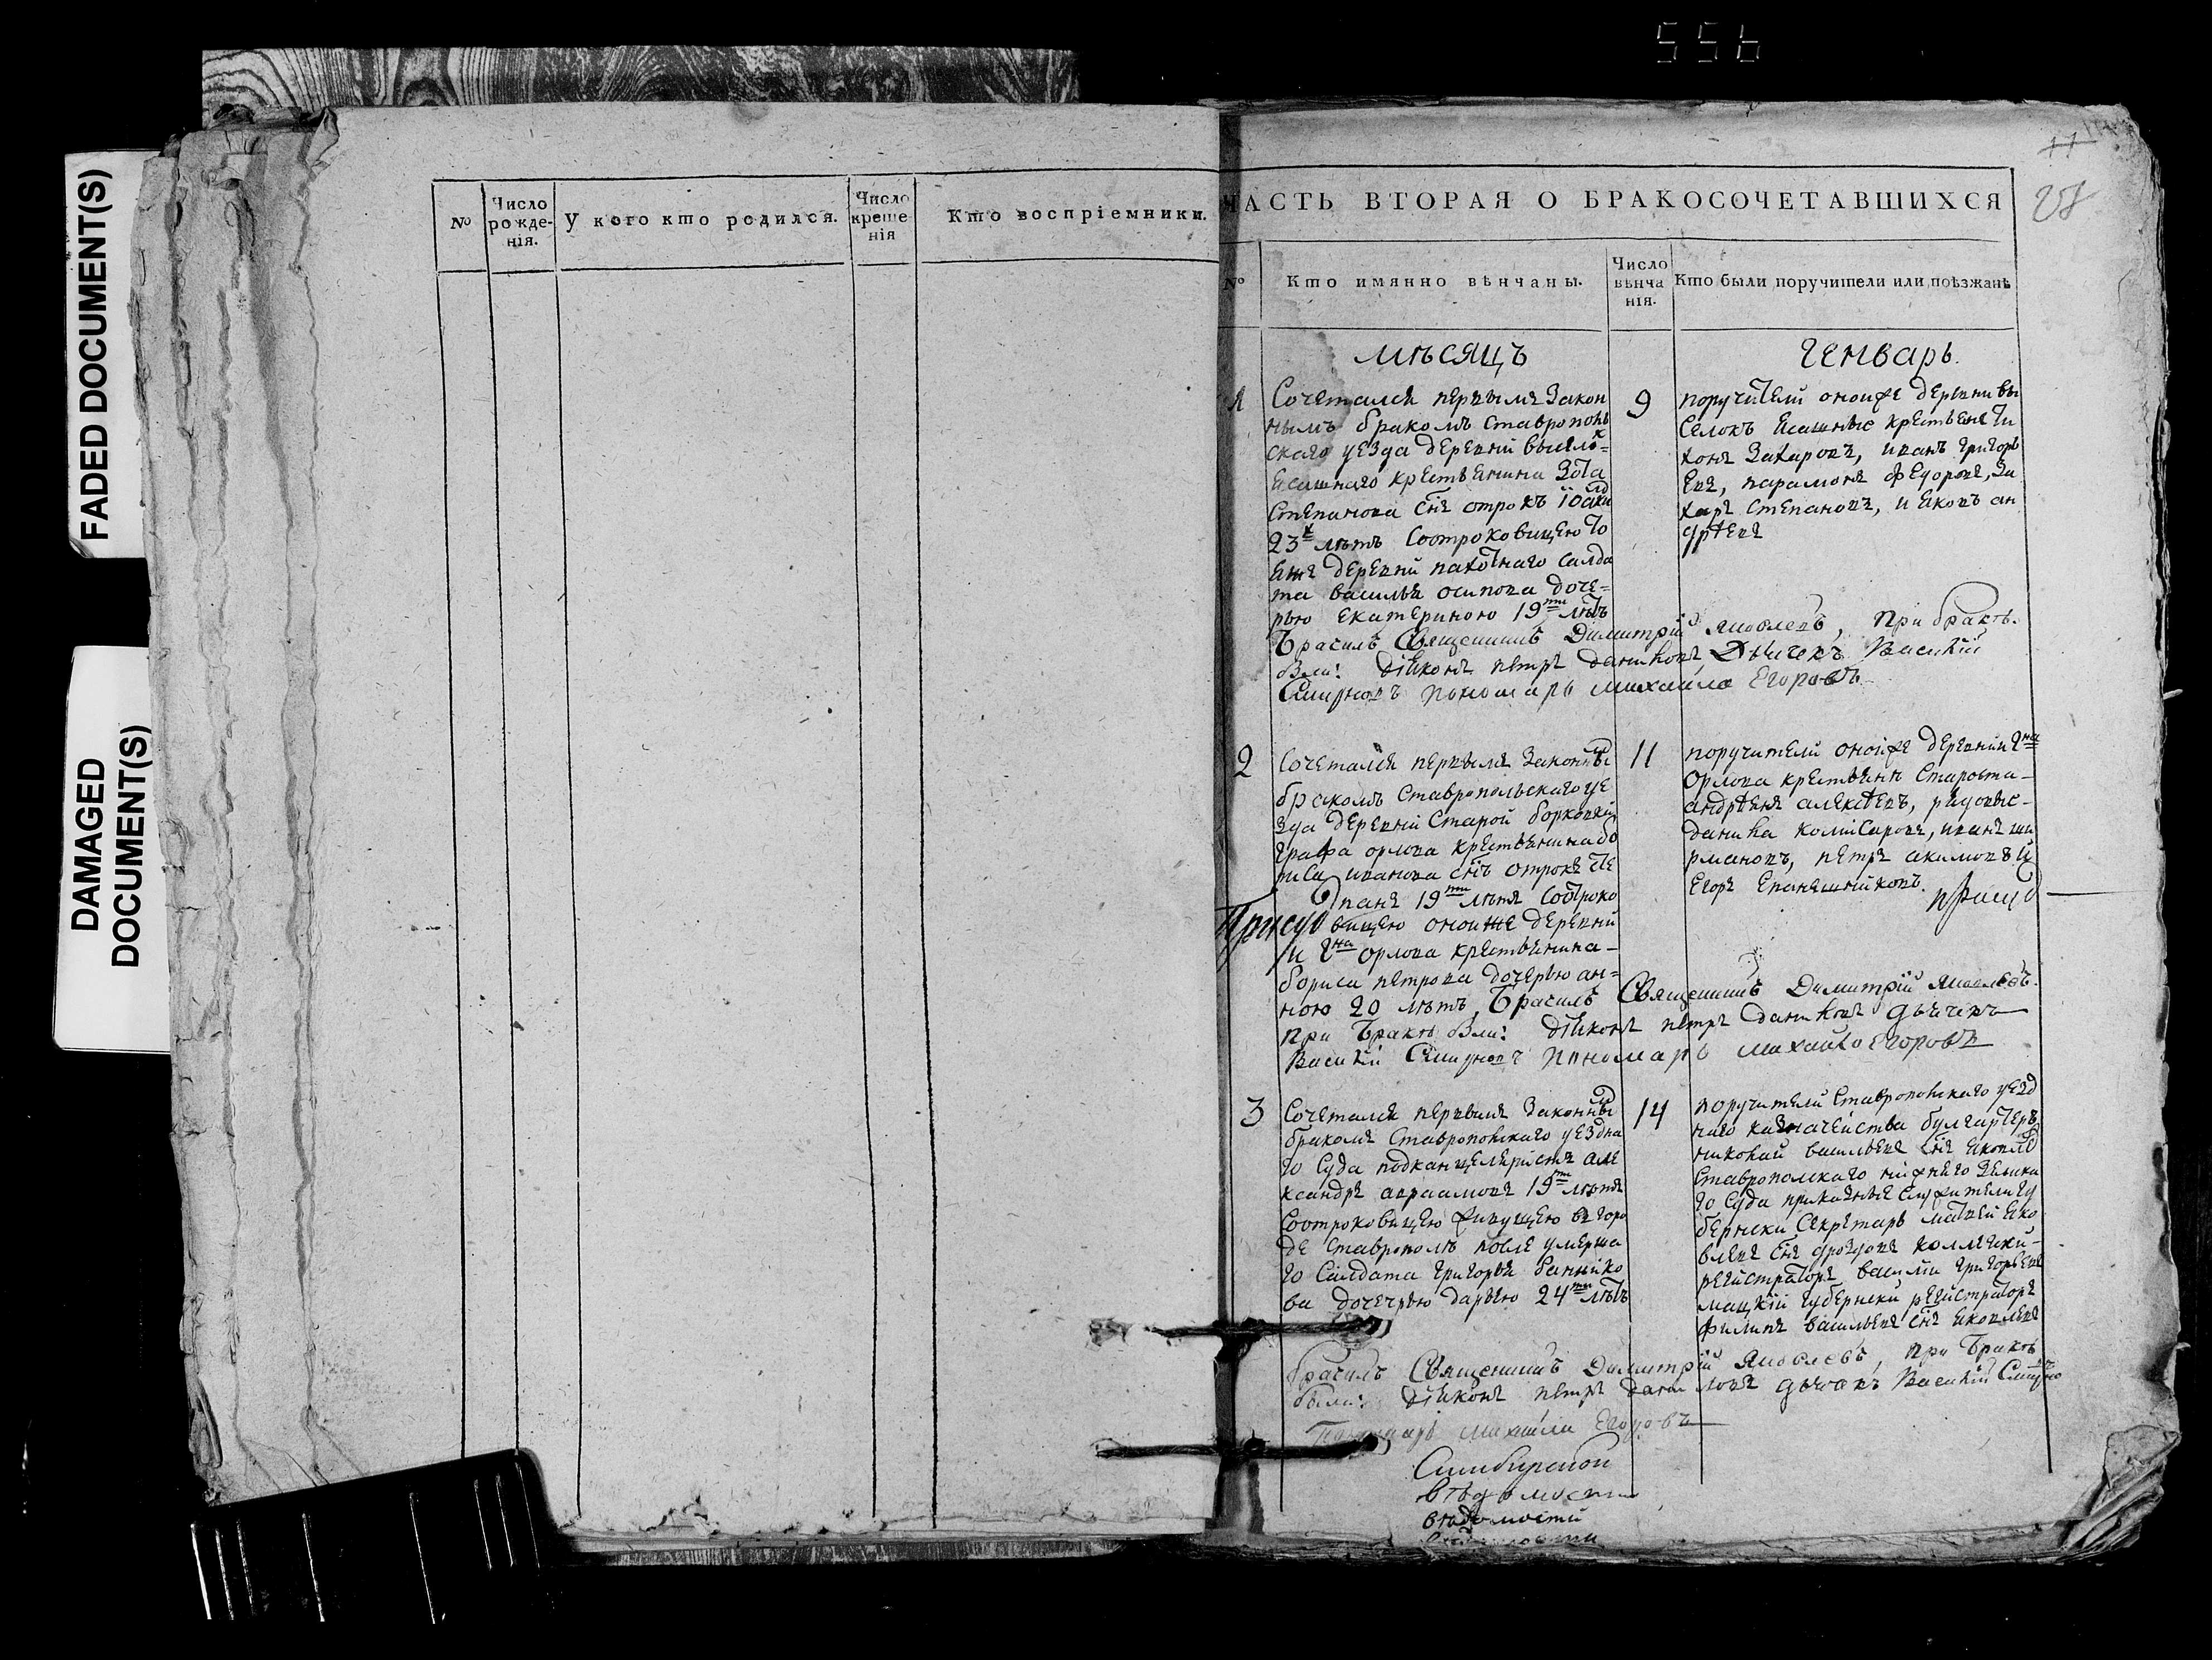 556
FADED DOCUMENT(S)
DAMAGED
DOCUMENT(S)
№
Число
рожде-
нія.
У кого кто родился.
Число
креще
нія
Кто воспріемники.
ЧАСТЬ ВТОРАЯ О БРАКОСОЧЕТАВШИХСЯ
№
Кто имянно вѣнчаны.
Число
вѣнча
нія.
Кто были поручители или поѣзжанѣ
мѣсяцъ
Генварь.
1
Сочетался первымъ закон
нымъ бракомъ Ставрополь
скаго уезда деревни выселок
ясашнаго крестьянина Зота
Степанова снъ отрокъ
23х лѣтъ Соотроковицею то
яже деревни пахотнаго салда
та василья осипова доче=
рью екатериною 19ти лѣтъ
9
поручители оной же деревни вы
селокъ ясашные крестьяня ти
хонъ Захаровъ, иванъ григорь
евъ, парамонъ федоровъ, за
харъ степановъ, и яковъ ан
дрѣевъ
Бракъ Священникъ Димитрій Яковлевъ, При бракѣ.
были: діяконъ петръ даниловъ, Дьячекъ Василій
Смирновъ пономарь михайла Егоровъ
2
Сочетался первымъ законны
бракомъ Ставропольскаго уе
зда деревни Старой борковки
графа орлова крестьянина бо
риса иванова снъ отрокъ сте
панъ 19ти лѣтъ соотроко
вицею оной же деревни
и гна орлова крестьянина
бориса петрова дочерью ан=
ною 20 лѣтъ,
11
поручители оной же деревни гна
Орлова крестьянѣ Староста
андрѣянъ алексѣевъ, рядовые
данила комисаровъ, иванъ ши
рмановъ, петръ акимовъ и
Егоръ Епанешниковъ.
Священникъ Димитрій Яковлевъ.
при Бракѣ были: діяконъ петръ даниловъ дьячекъ
Василій Смирновъ пономарь михайло Егоровъ
3
Сочетался первымъ законны
бракомъ Ставропольскаго уездна
го Суда подканцеляристъ але
ксандръ авраамовъ 19ти лѣтъ
Соотроковицею живущею въ горо
де Ставрополѣ после умерша
го Салдата григорья
ва дочерью дарьею 24ти лѣтъ
14
поручители Ставропольскаго уезд
наго казначейства булгартеръ
николай васильевъ снъ яковлев
Ставропольскаго нижняго земска
го Суда приказные служители гу
бернски секретарь матвей яко
влевъ снъ дроздовъ коллежски
регистраторъ василий григорьевъ
мацкій губернски регистраторъ
филипъ васильевъ снъ яковлевъ
Священникъ Димитрій Яковлевъ, при Бракѣ
были: діяконъ петръ даниловъ дьячекъ Василій Смирно
Пономарь михайла Егоровъ
Симбирской
вѣдомости
вѣдомости